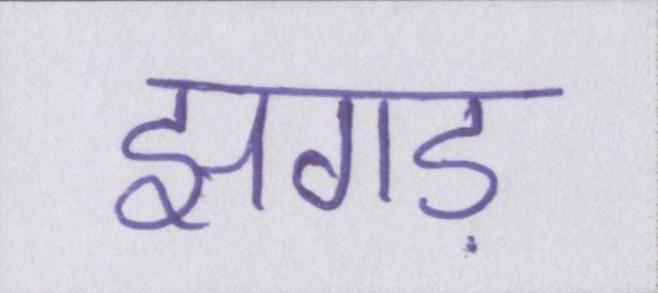 झगड़